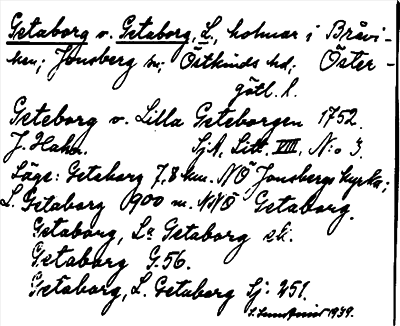 Getaborg o. Getaborg, L., holmar i Bråvi-
ken; Jonsberg sn; Östkinds hd; Öster-
götl. l.
Geteborg o. Lilla Geteborgen 1752.
J. Hahn. SjA, Litt. VIII, N:o 3.
Läge: Getaborg 7,8 km. NÖ Jonsbergs kyrka;
L. Getaborg 900 m. NNÖ Getaborg.
Getaborg, La Getaborg ek.
Getaborg G.56.
Getaborg, L. Getaborg Sj. 251.
1939.